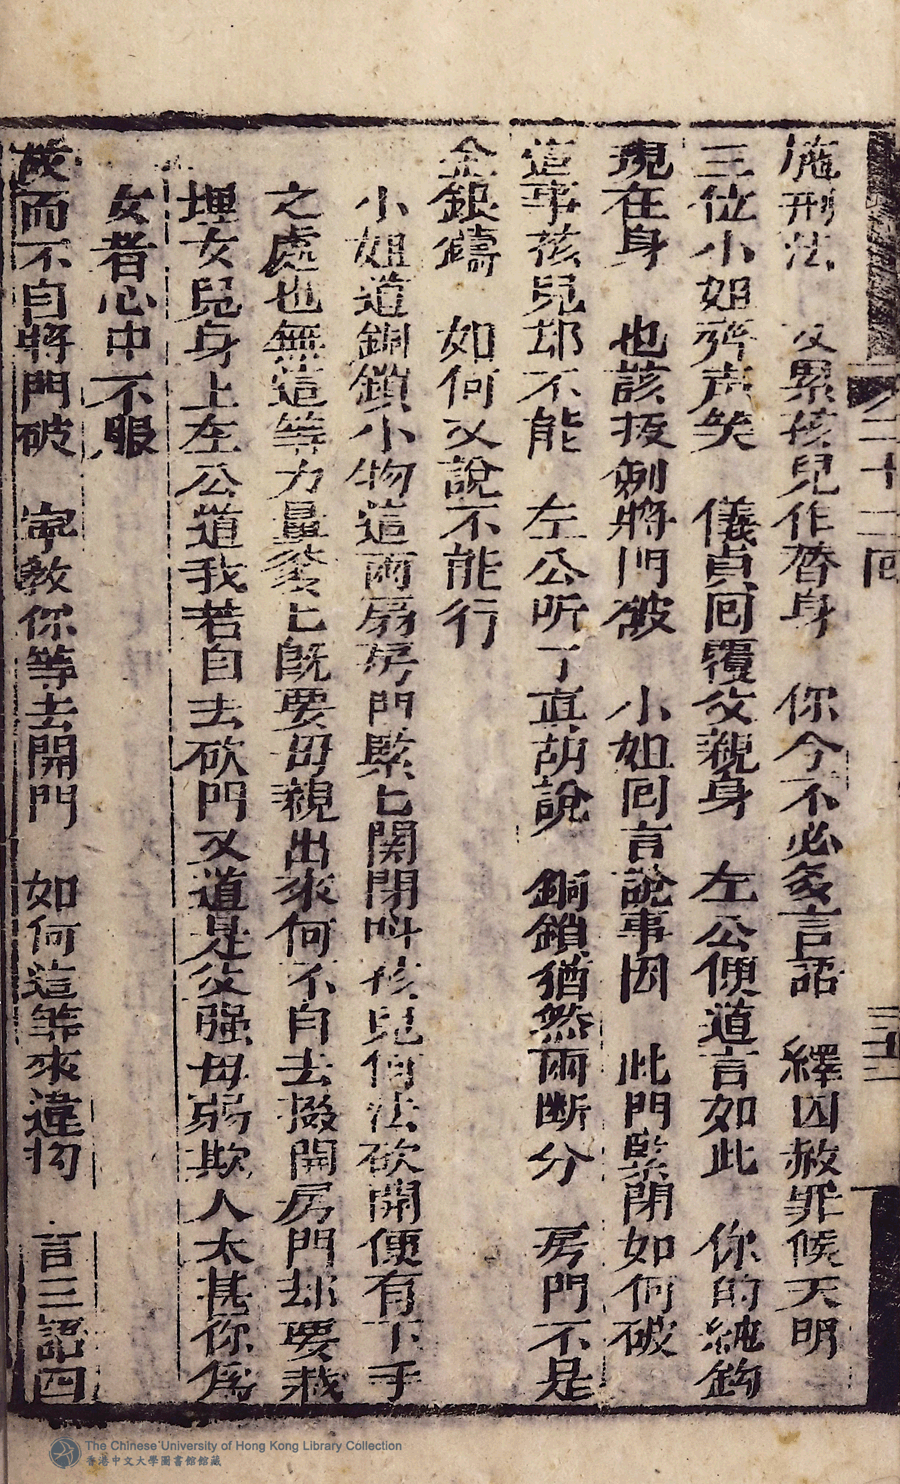 二十二回 三十二
施刑法 又累孩兒作替身 你今不必多言語 繹囚赦罪候天明
三位小姐齊声笑 儀貞回覆父親身 左公便道言如此 你的純鈎
現在身 也該拔劍將門破 小姐回言說事因 此門緊閉如何破
這事孩兒却不能 左公听了直胡說 銅鎖猶然兩断分 房門不是
金銀鑄 如何又說不能行
小姐道銅鎖小物這兩扇房門緊匕関閉呌孩兒何法砍開便有下手
之處也無這等力量爹匕既要母親出來何不自去掇開房門却要栽
埋女兒身上左公道我若自去砍門又道是父强母弱欺人太甚你爲
女者心中不服
故而不自將門破 寧教你等去開門 如何這等來違拗 言三語四
The Chinese University of Hong Kong Library Collection
香港中文大學圖書館館藏